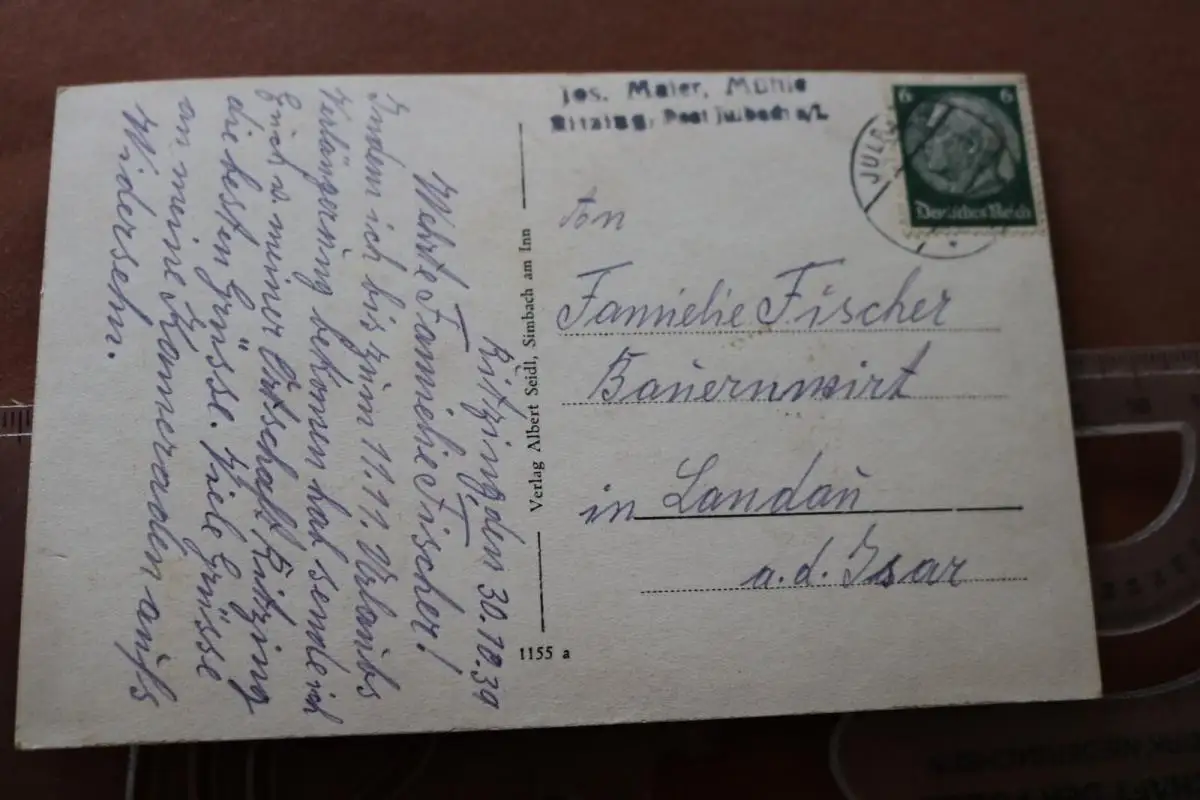 Jos. Maier, Mühle
Ritzing, Post Julbach a/I.
JULB
6 6
Deutsches Reich
An
Familie Fischer
Bauernwirt
in Landau
a. d. Isar
Verlag Albert Seidl, Simbach am Inn
1155 a
Ritzing, den 30.10.39
Werte Familie Fischer!
Indem ich bis zum 11.11. Urlaubs
verlängerung bekomen hab sende ich
Euch v meiner Ortschaft Ritzing
die besten Grüsse. Viele Grüsse
an meine Kameraden aufs
Widersehn.